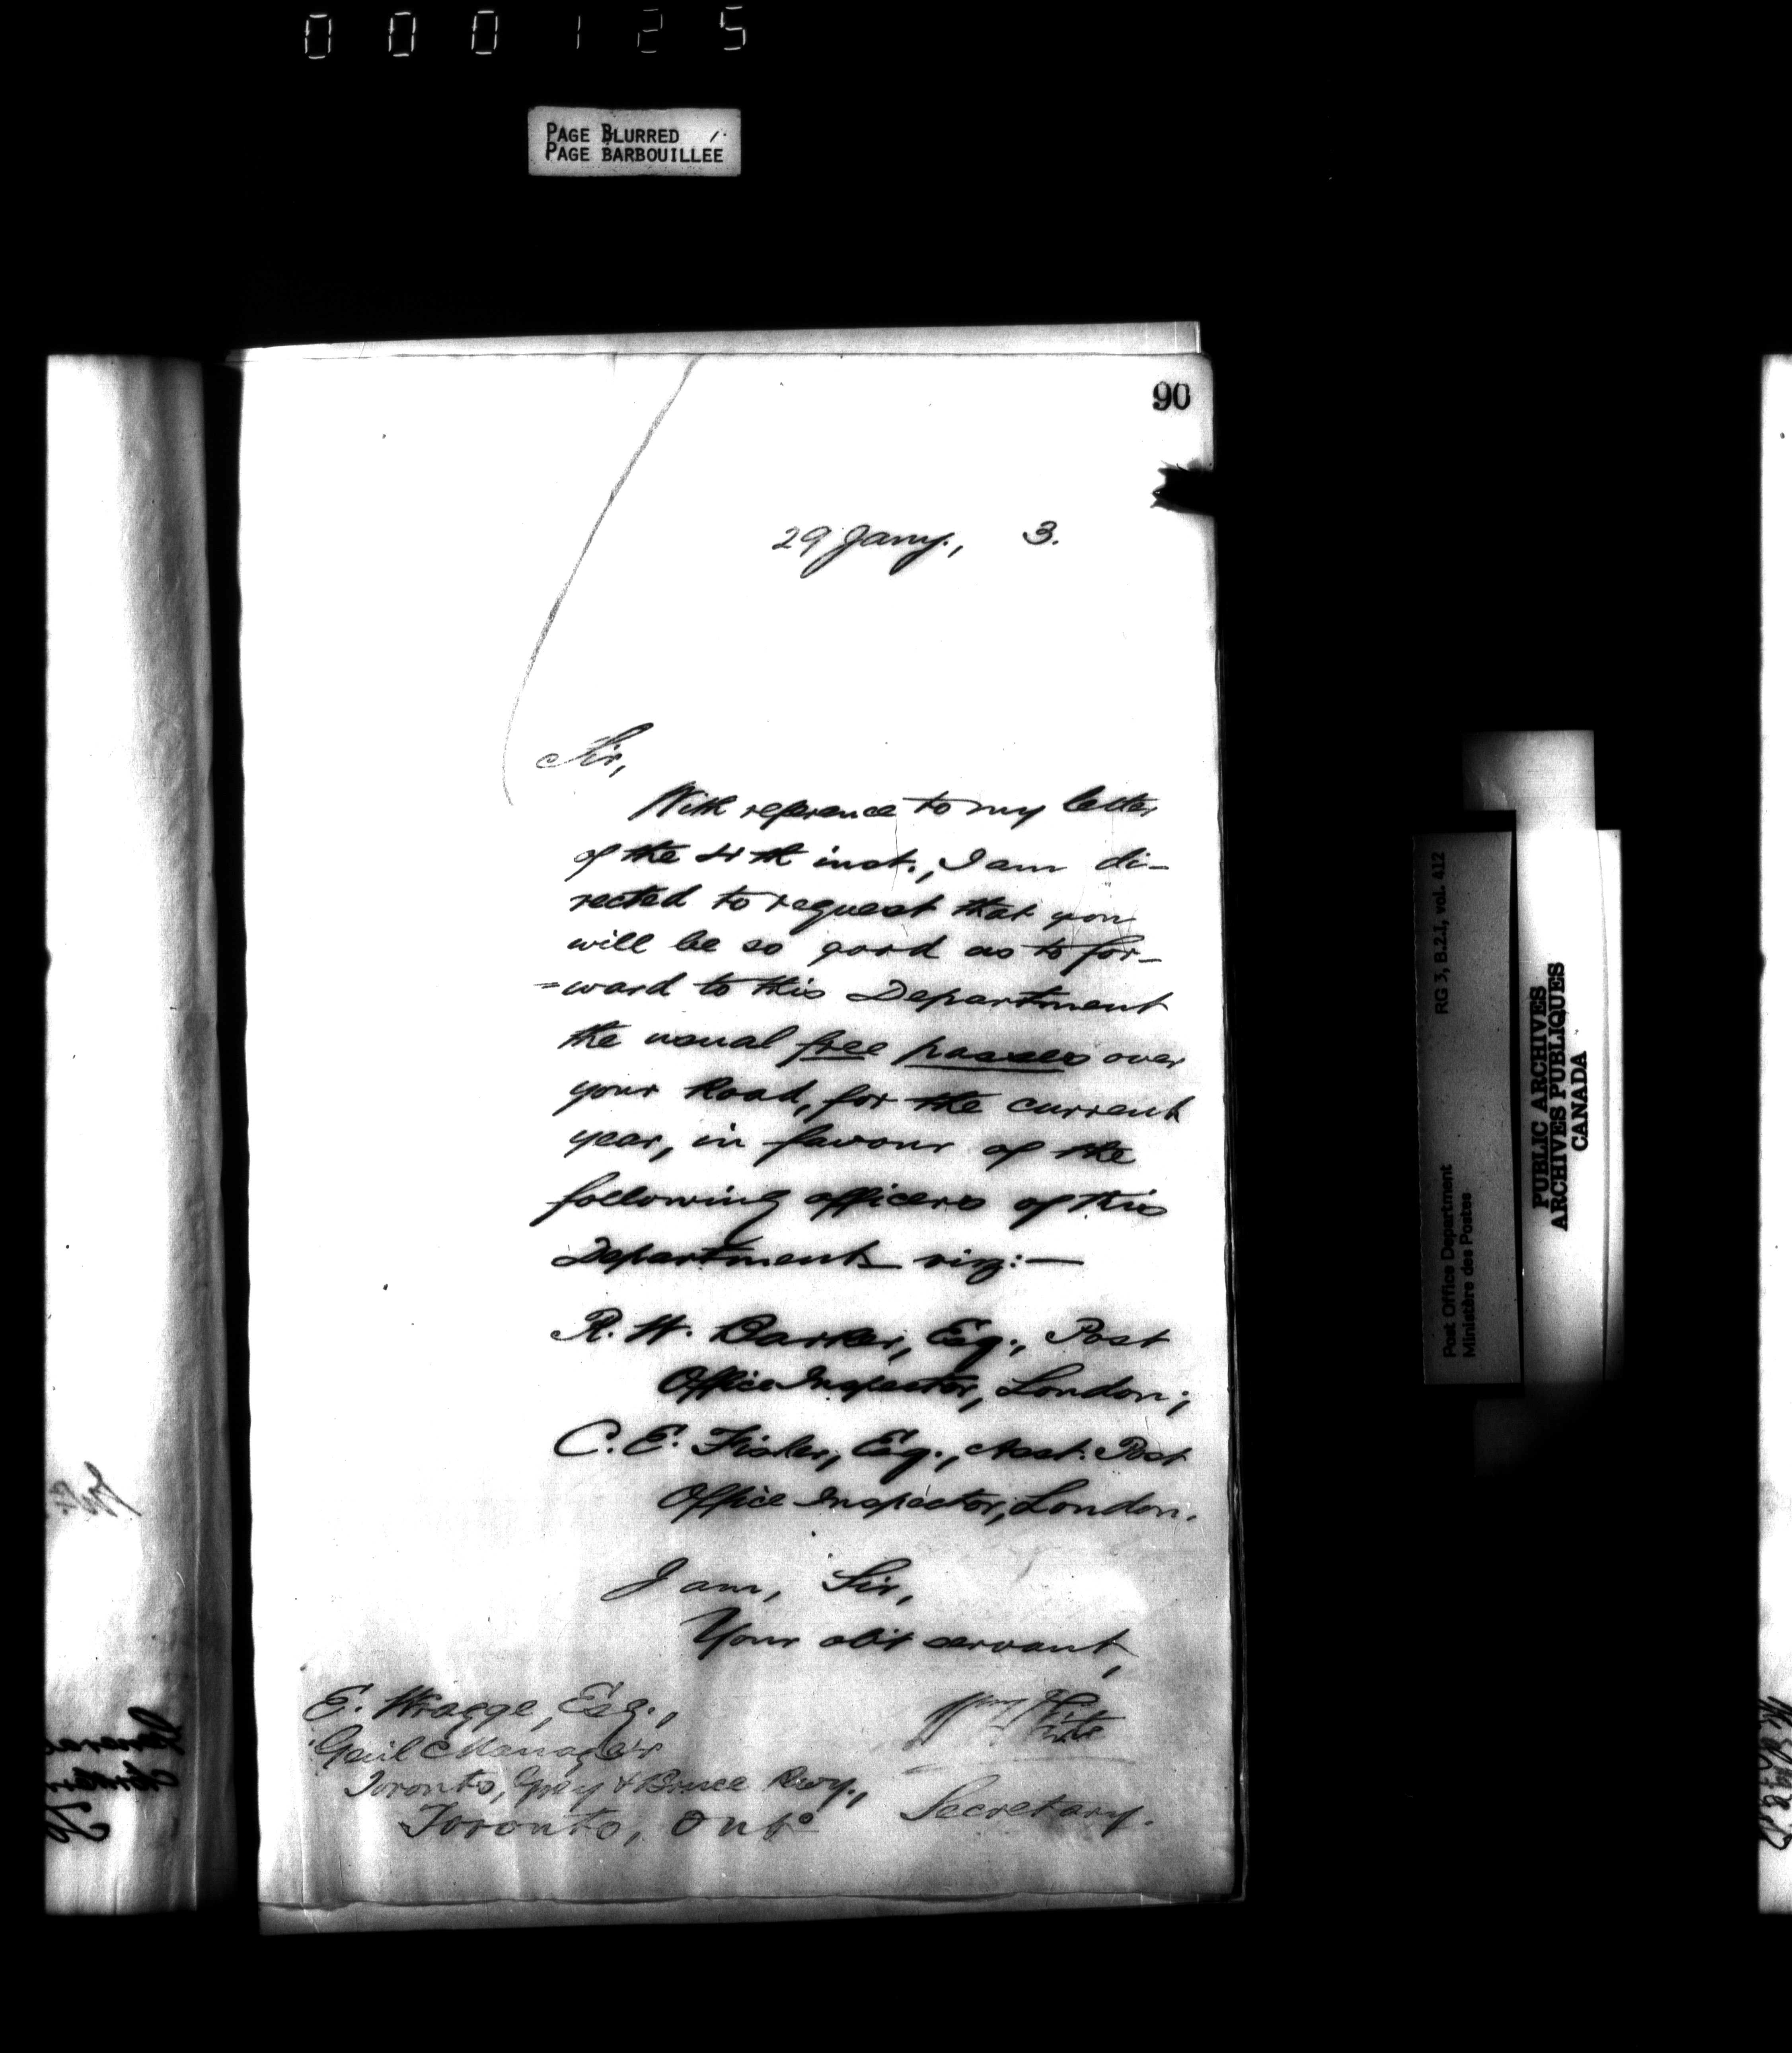 000125
PAGE BLURRED
PAGE BARBOUILLEE
90
29 Jany., 3.
Sir,
With reference to my letter
of the 4th inst., I am di-
rected to request that you
will be so good as to for-
=ward to this Department
the usual free passes over
your Road, for the current
year, in favour of the
following officers of this
Department viz:—
R. W. Barker, Esq., Post
Office Inspector, London;
C. E. Fisher, Esq., Asst. Post
Office Inspector, London.
I am, Sir,
Your obt servant,
Wm White
Secretary.
E. Wragge, Esq.,
Genl Manager
Toronto, Grey & Bruce Rwy.,
Toronto, Onto
Post Office Department RG 3, B.2.I, vol. 412
Ministère des Postes
PUBLIC ARCHIVES
ARCHIVES PUBLIQUES
CANADA